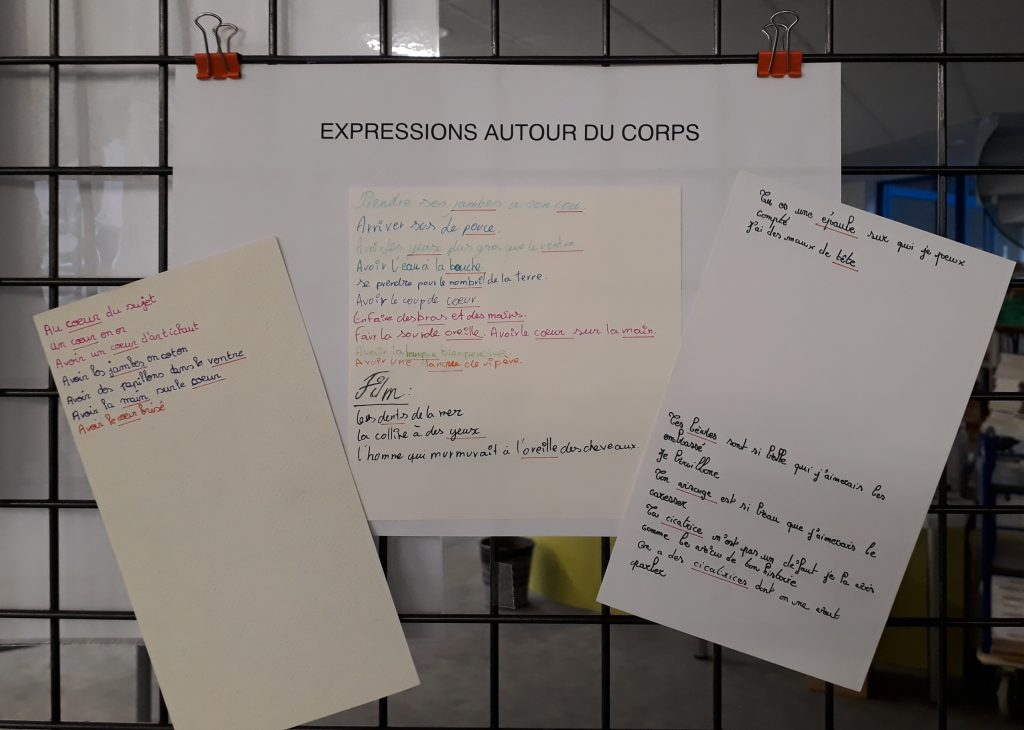 EXPRESSIONS AUTOUR DU CORPS
Au coeur du sujet
Un coeur en or
Avoir un coeur d'artichaut
Avoir les jambes en coton
Avoir des papillons dans le ventre
Avoir la main sur le coeur
Avoir le coeur brisé
Prendre ses jambes a son cou.
Arriver sos le pouce.
Avoir les yeux plus gros que le ventre
Avoir l'eau à la bouche.
se prendre pour le nombril de la terre.
Avoir le coup de coeur.
En faire des bras et des mains.
Fair la sourde oreille. Avoir le coeur sur la main.
Avoir la langue bien pendue
Avoir une langue de vipère.
Film:
les dents de la mer
la colline à des yeux
l'homme qui murmurait à l'oreille des chevaux.
Tu es une épaule sur qui je peux
compté
J'ai des maux de tête
Tes lèvres sont si belle qui j'aimerais les
embrassé
Je
Ton visage est si beau que j'aimerais le
caresser
Ta cicatrice n'est pas un défaut je la vois
comme les de ton histoire
On a des cicatrices dont on ne veut
parler